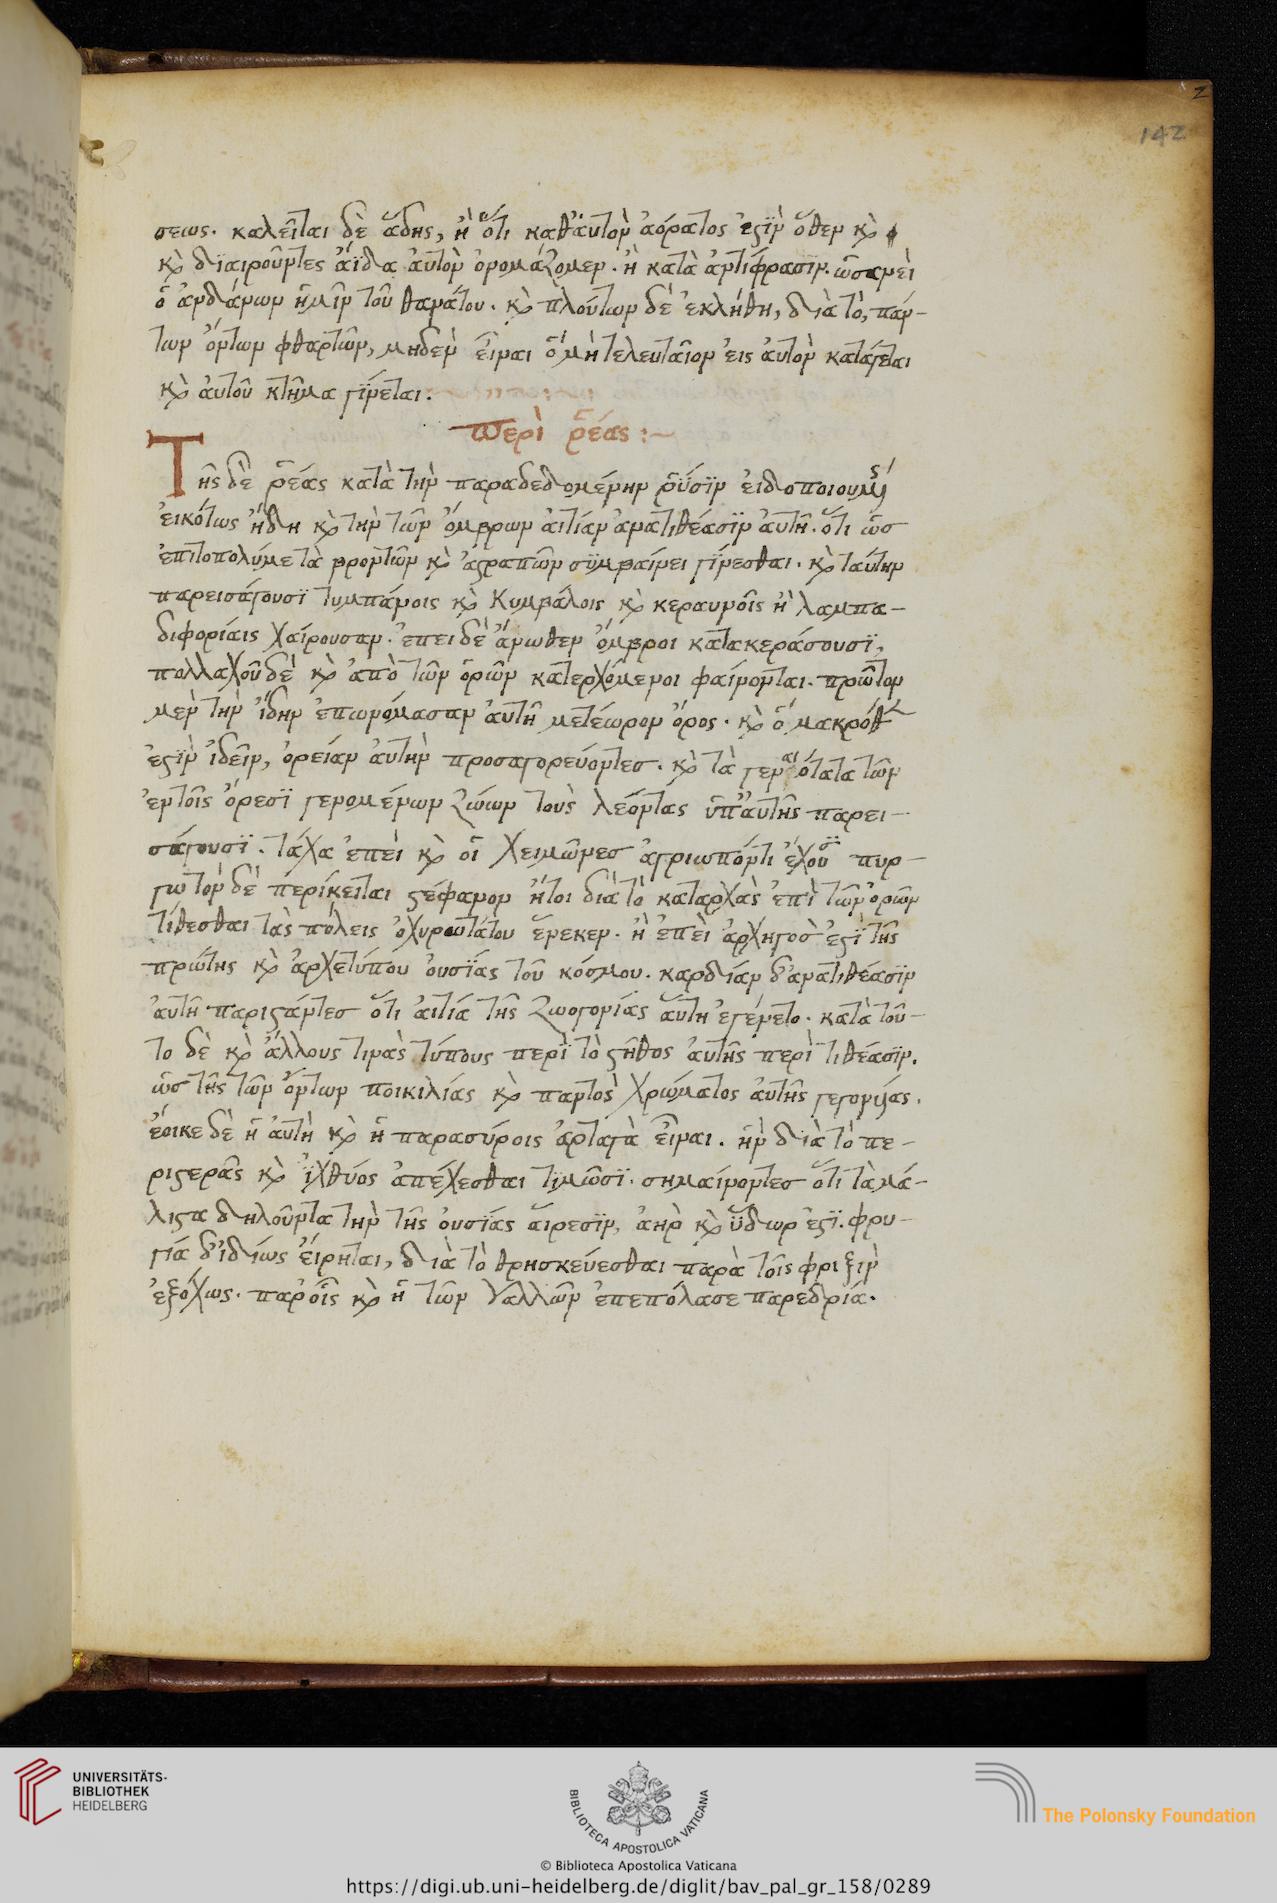 2
142
σεως. καλεῖται δὲ ἅδης, ἢ ὅτι καθ' ἁυτὸν ἀόρατος ἐστὶν ὅθεν κ̀
κ̀ διαιροῦντες ἀΐδα ἀυτὸν ὀνομάζομεν. ἢ κατὰ ἀντίφρασιν. ὡσανεὶ
ὁ ἁνδάνων ἡμῖν τοῦ θανάτου. κ̀ πλούτων δὲ ἐκλήθη, διὰ τὸ, πάν-
των ὄντων φθαρτῶν, μηδὲν εἶναι ὃ μὴ τελευταῖον ἐις ἀυτὸν κατάγεται
κ̀ ἀυτοῦ κτῆμα γίνεται.
Περὶ ῥέας :~
Τῆς δὲ ῥέας κατὰ τὴν παραδεδομένην ῥύσιν ἐιδοποιουμς
ἐικότως ἤδη κ̀ τὴν τῶν ὄμβρων ἀιτίαν ἀνατιθέασιν ἀυτῆ. ὅτι ὡσ
ἐπιτοπολύμετὰ βροντῶν κ̀ ἀστραπῶν συμβαίνει γίνεσθαι. κ̀ ταύτην
παρεισάγουσι τυμπάνοις κ̀ κυμβάλοις κ̀ κεραυνοῖς ἢ λαμπα-
διφορίαις χαίρουσαν. ἐπειδὲ ἄνωθεν ὄμβροι κατακεράσουσι,
πολλαχοῦ δὲ κ̀ ἀπὸ τῶν ὁρῶν κατερχόμενοι φαίνονται. πρῶτον
μὲν τὴν ἴδην ἐπωνόμασαν ἀυτῆ μετέωρον ὄρος. κ̀ ὃ μακρόθεν
ἐστὶν ἰδεῖν, ὀρείαν ἀυτὴν προσαγορεύοντεσ. κ̀ τὰ γενναιότατα τῶν
ἐντοῖς ὄρεσι γενομένων ζώων τοὺς λέοντας ὑπ' ἀυτῆς παρει-
σάγουσι. τάχα ἐπεὶ κ̀ οἱ χειμῶνεσ ἀγριωπόντι ἔχουσι πυρ-
γωτὸν δὲ περίκειται στέφανον ἤτοι διὰ τὸ καταρχὰς ἐπὶ τῶν ὀρῶν
τίθεσθαι τὰς πόλεις ὀχυρωτάτου ἕνεκεν. ἢ ἐπεὶ ἀρχηγὸσ ἐστὶ τῆς
πρώτης κ̀ ἀρχετύπου ὀυσίας τοῦ κόσμου. καρδίαν δ' ἀνατιθέασιν
ἀυτῆ παριστάντεσ ὅτι ἀιτία τῆς ζωογονίας ἅυτη ἐγένετο. κατὰ τοῦ-
το δὲ κ̀ ἄλλους τινὰς τύπους περὶ τὸ στῆθος ἀυτῆς περὶ τιθέασιν.
ὡσ τῆς τῶν ὄντων ποικιλίας κ̀ παντὸς χρώματος ἀυτῆς γεγονυίας.
ἔοικε δὲ ἡ ἀυτὴ κ̀ ἡ παρασύροις ἀρταγὰ εἶναι. ἣν διὰ τὸ πε-
ριστερᾶς κ̀ ἰχθύος ἀπέχεσθαι τιμῶσι. σημαίνοντεσ ὅτι τὰ μά-
λιστα δηλοῦντα τὴν τῆς ὀυσίας ἅιρεσιν, ἀὴρ κ̀ ὕδωρ ἐστὶ. φρυ-
γία δ' ἰδίως ἔιρηται, διὰ τὸ θρησκεύεσθαι παρὰ τοῖς φριξὶν
ἐξόχως. παρ' οἷς κ̀ ἡ τῶν γάλλων ἐπεπόλασε παρεδρία.
UNIVERSITÄTS-
BIBLIOTHEK
HEIDELBERG
BIBLIOTECA APOSTOLICA VATICANA
© Biblioteca Apostolica Vaticana
The Polonsky Foundation
https://digi.ub.uni-heidelberg.de/diglit/bav_pal_gr_158/0289